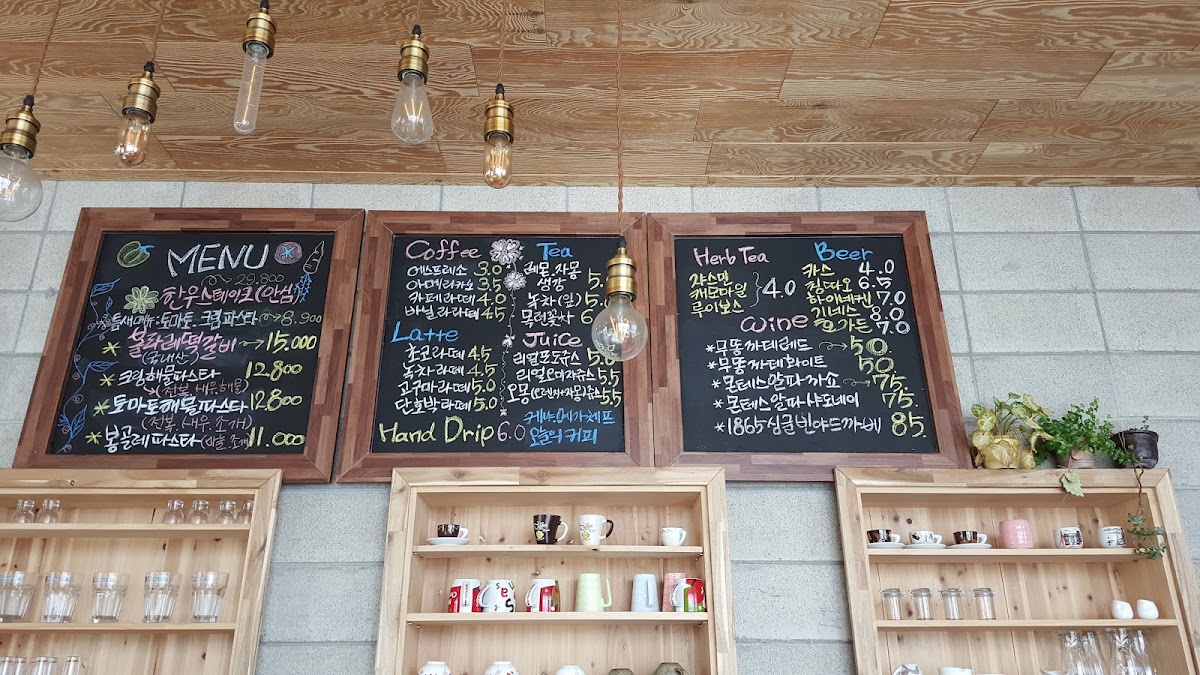 MENU
29.800
한우스테이크(안심)
틈새메뉴:토마토.크림파스타 8.900
불라래떡갈비 15.000
(국내산)
*크림해물파스타 12.800
(전복,새우,해물)
*토마토해물파스타 12.800
(전복,새우,조개)
*봉골레파스타(바늘조개) 11.000
Coffee
에스프레소 3.0
아메리카노 3.5
카페라떼 4.0
바닐라라떼 4.5
Latte
초코라떼 4.5
녹차라떼 4.5
고구마라떼 5.0
단호박라떼 5.0
Hand Drip 6.0
Tea
레몬.자몽
생강
녹차(잎) 5.
목련꽃차 6
Juice
리얼포도쥬스 5.8
리얼오미자쥬스 5.5
오몽(오렌지+자몽)쥬스 5.5
케냐.메가체프
오늘의 커피
Herb Tea
쟈스민
캐모마일 4.0
루이보스
Beer
카스 4.0
칭따오 6.5
하이네켄 7.0
기네스 8.0
호가든 7.0
Wine
*무똥까데레드 50
*무똥까떼화이트 50.
*몬테스알파까쇼 75.
*몬테스알파샤도네이 75.
*1865싱글빈야드까베 85.